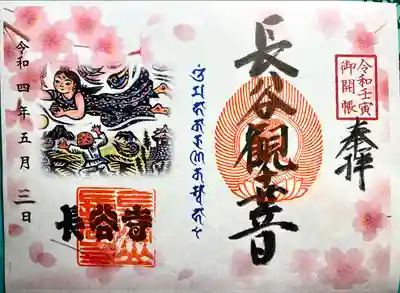 令和壬寅
御開帳
奉拝
長谷観世音
長谷寺
令和四年五月三日